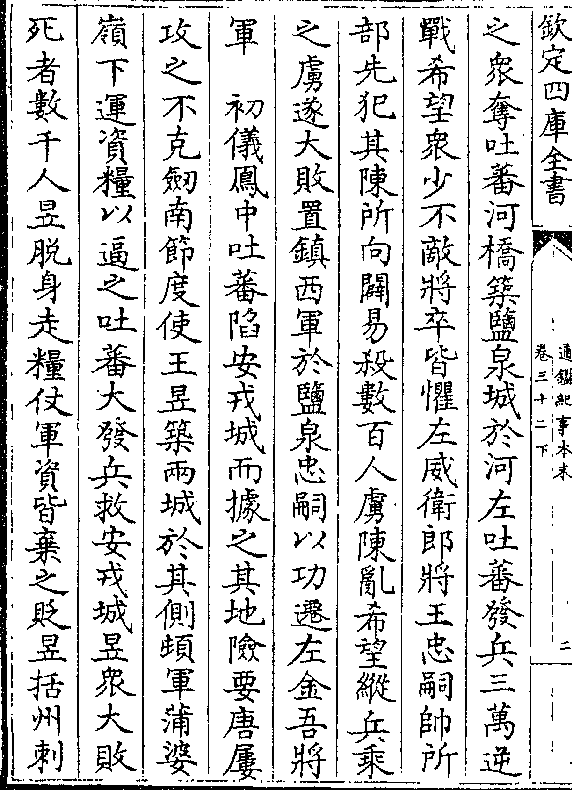 欽定四庫全書
通鑑紀事本末
卷三十二下
二
之衆奪吐蕃河橋築鹽泉城於河左吐蕃發兵三萬逆
戰希望衆少不敵將卒皆懼左威衛郎將王忠嗣帥所
部先犯其陳所向闢易殺數百人虜陳亂希望縱兵乘
之虜遂大敗置鎮西軍於鹽泉忠嗣以功遷左金吾將
軍　初儀鳳中吐蕃陷安戎城而據之其地險要唐屢
攻之不克劒南節度使王昱築兩城於其側頓軍蒲婆
嶺下運資糧以逼之吐蕃大發兵救安戎城昱衆大敗
死者數千人昱脫身走糧仗軍資皆棄之貶昱括州刺